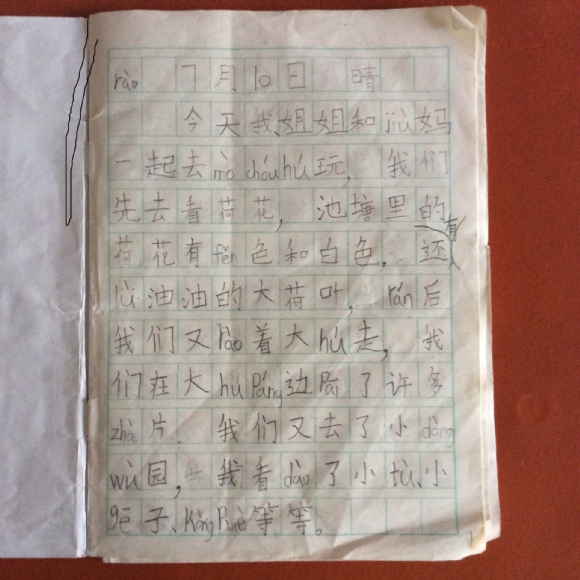 rào 7月10日 晴
今天我姐姐和jiù妈
一起去mò chóu hú玩，我们
先去看荷花，池塘里的
荷花有fěn色和白色，还有
lǜ油油的大荷叶，rán后
我们又rào着大hú走，我
们在大hú páng边pāi了许多
zhào片．我们又去了小dòng
wù园，我看dào了小tù、小
gē子、kǒng què等等。